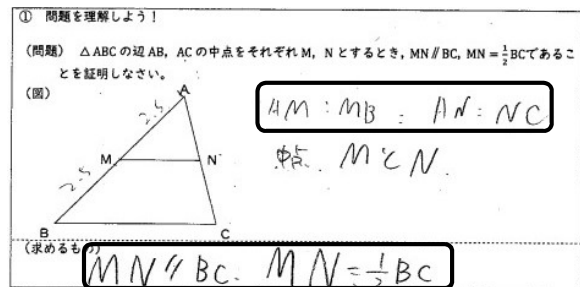 ① 問題を理解しよう！
(問題) △ABCの辺AB，ACの中点をそれぞれM，Nとするとき，MN∥BC，MN＝½BCであるこ
とを証明しなさい。
(図)
A
2.5
AM：MB：AN：NC
M
N
中点. MとN.
2.5
B
C
(求めるもの)
MN∥BC. MN＝½BC